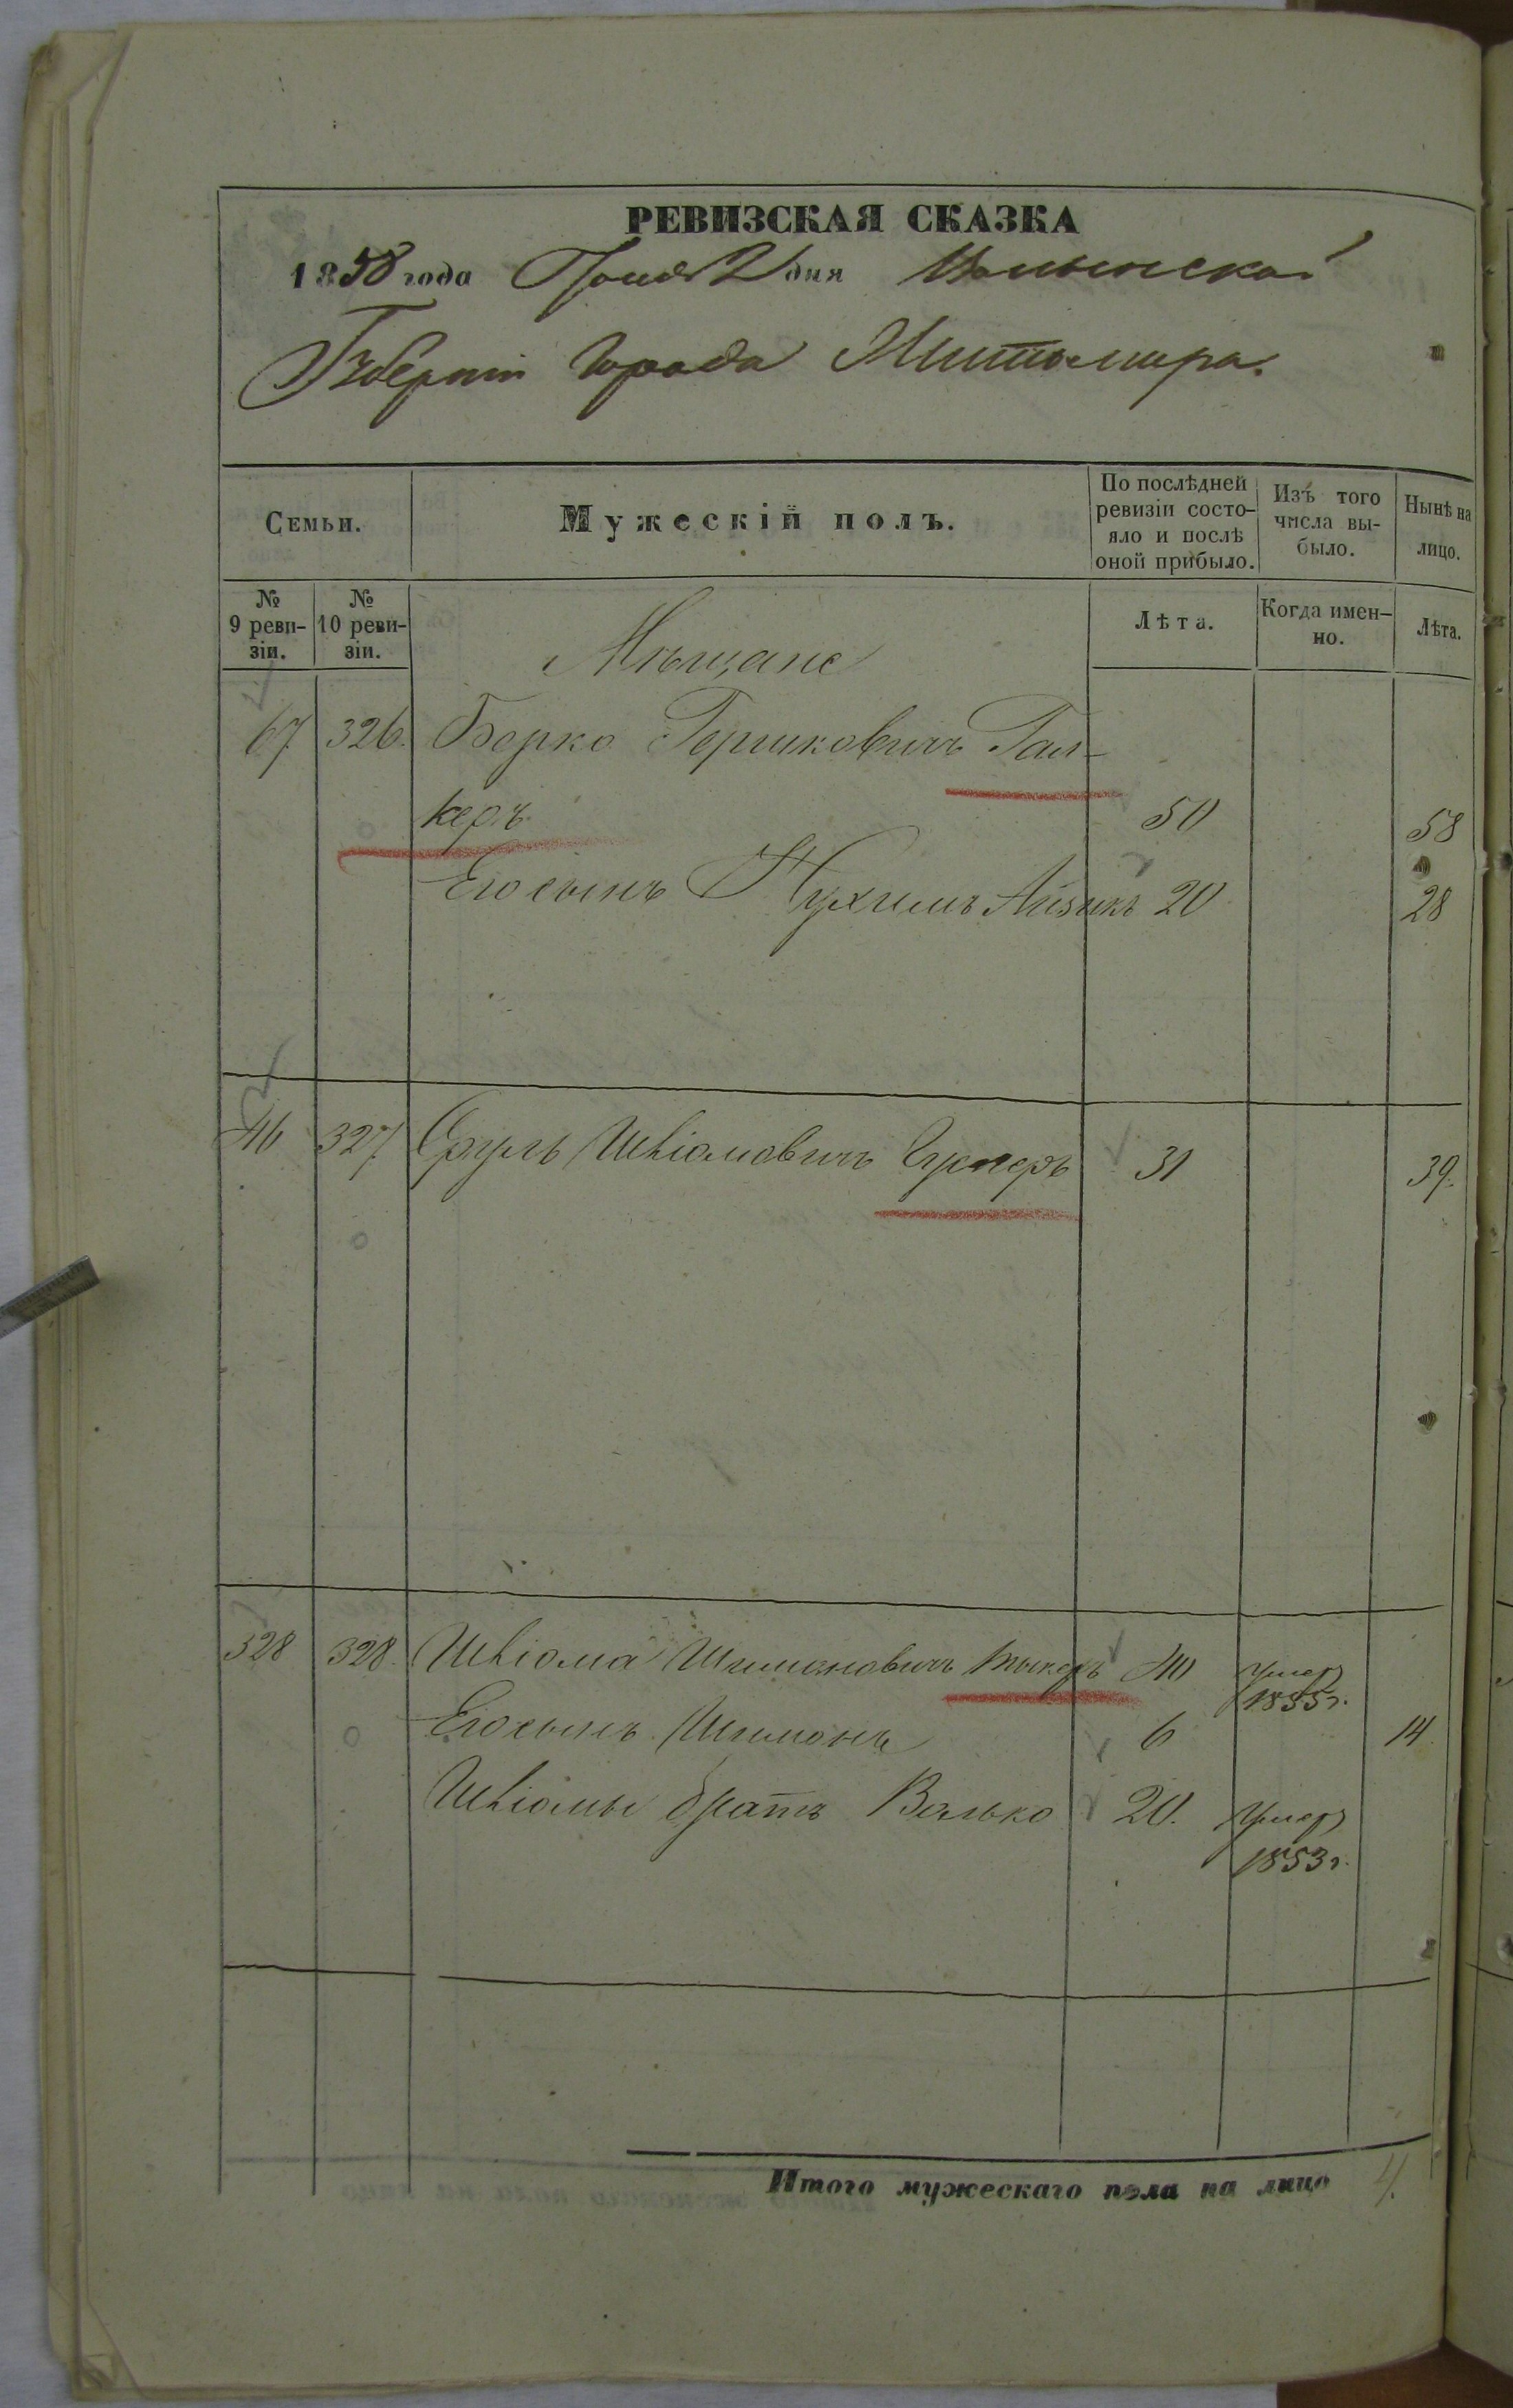 РЕВИЗСКАЯ СКАЗКА
1858 года Июня 2 дня Волынской
Губерніи города Житомира.
Семьи.
Мужескій полъ.
По послѣдней ревизіи состо-
яло и послѣ оной прибыло.
Изъ того числа вы-
было.
Нынѣ на лицо.
№ 9 реви-
зіи.
№ 10 реви-
зіи.
Лѣта.
Когда имен-
но.
Лѣта.
Мѣщане
67. 326. Борко Гершковичъ Гал-
керъ 50 58
Его сынъ Нухимъ Айзикъ 20 28
46 327 Сруль Шліомовичъ 31 39.
328 328. Шліома Шимоновичъ 40 умеръ
1855 г.
Его сынъ Шимонъ 6 14
Шліомы братъ Волько 20. умеръ
1853 г.
Итого мужескаго пола на лицо 4.